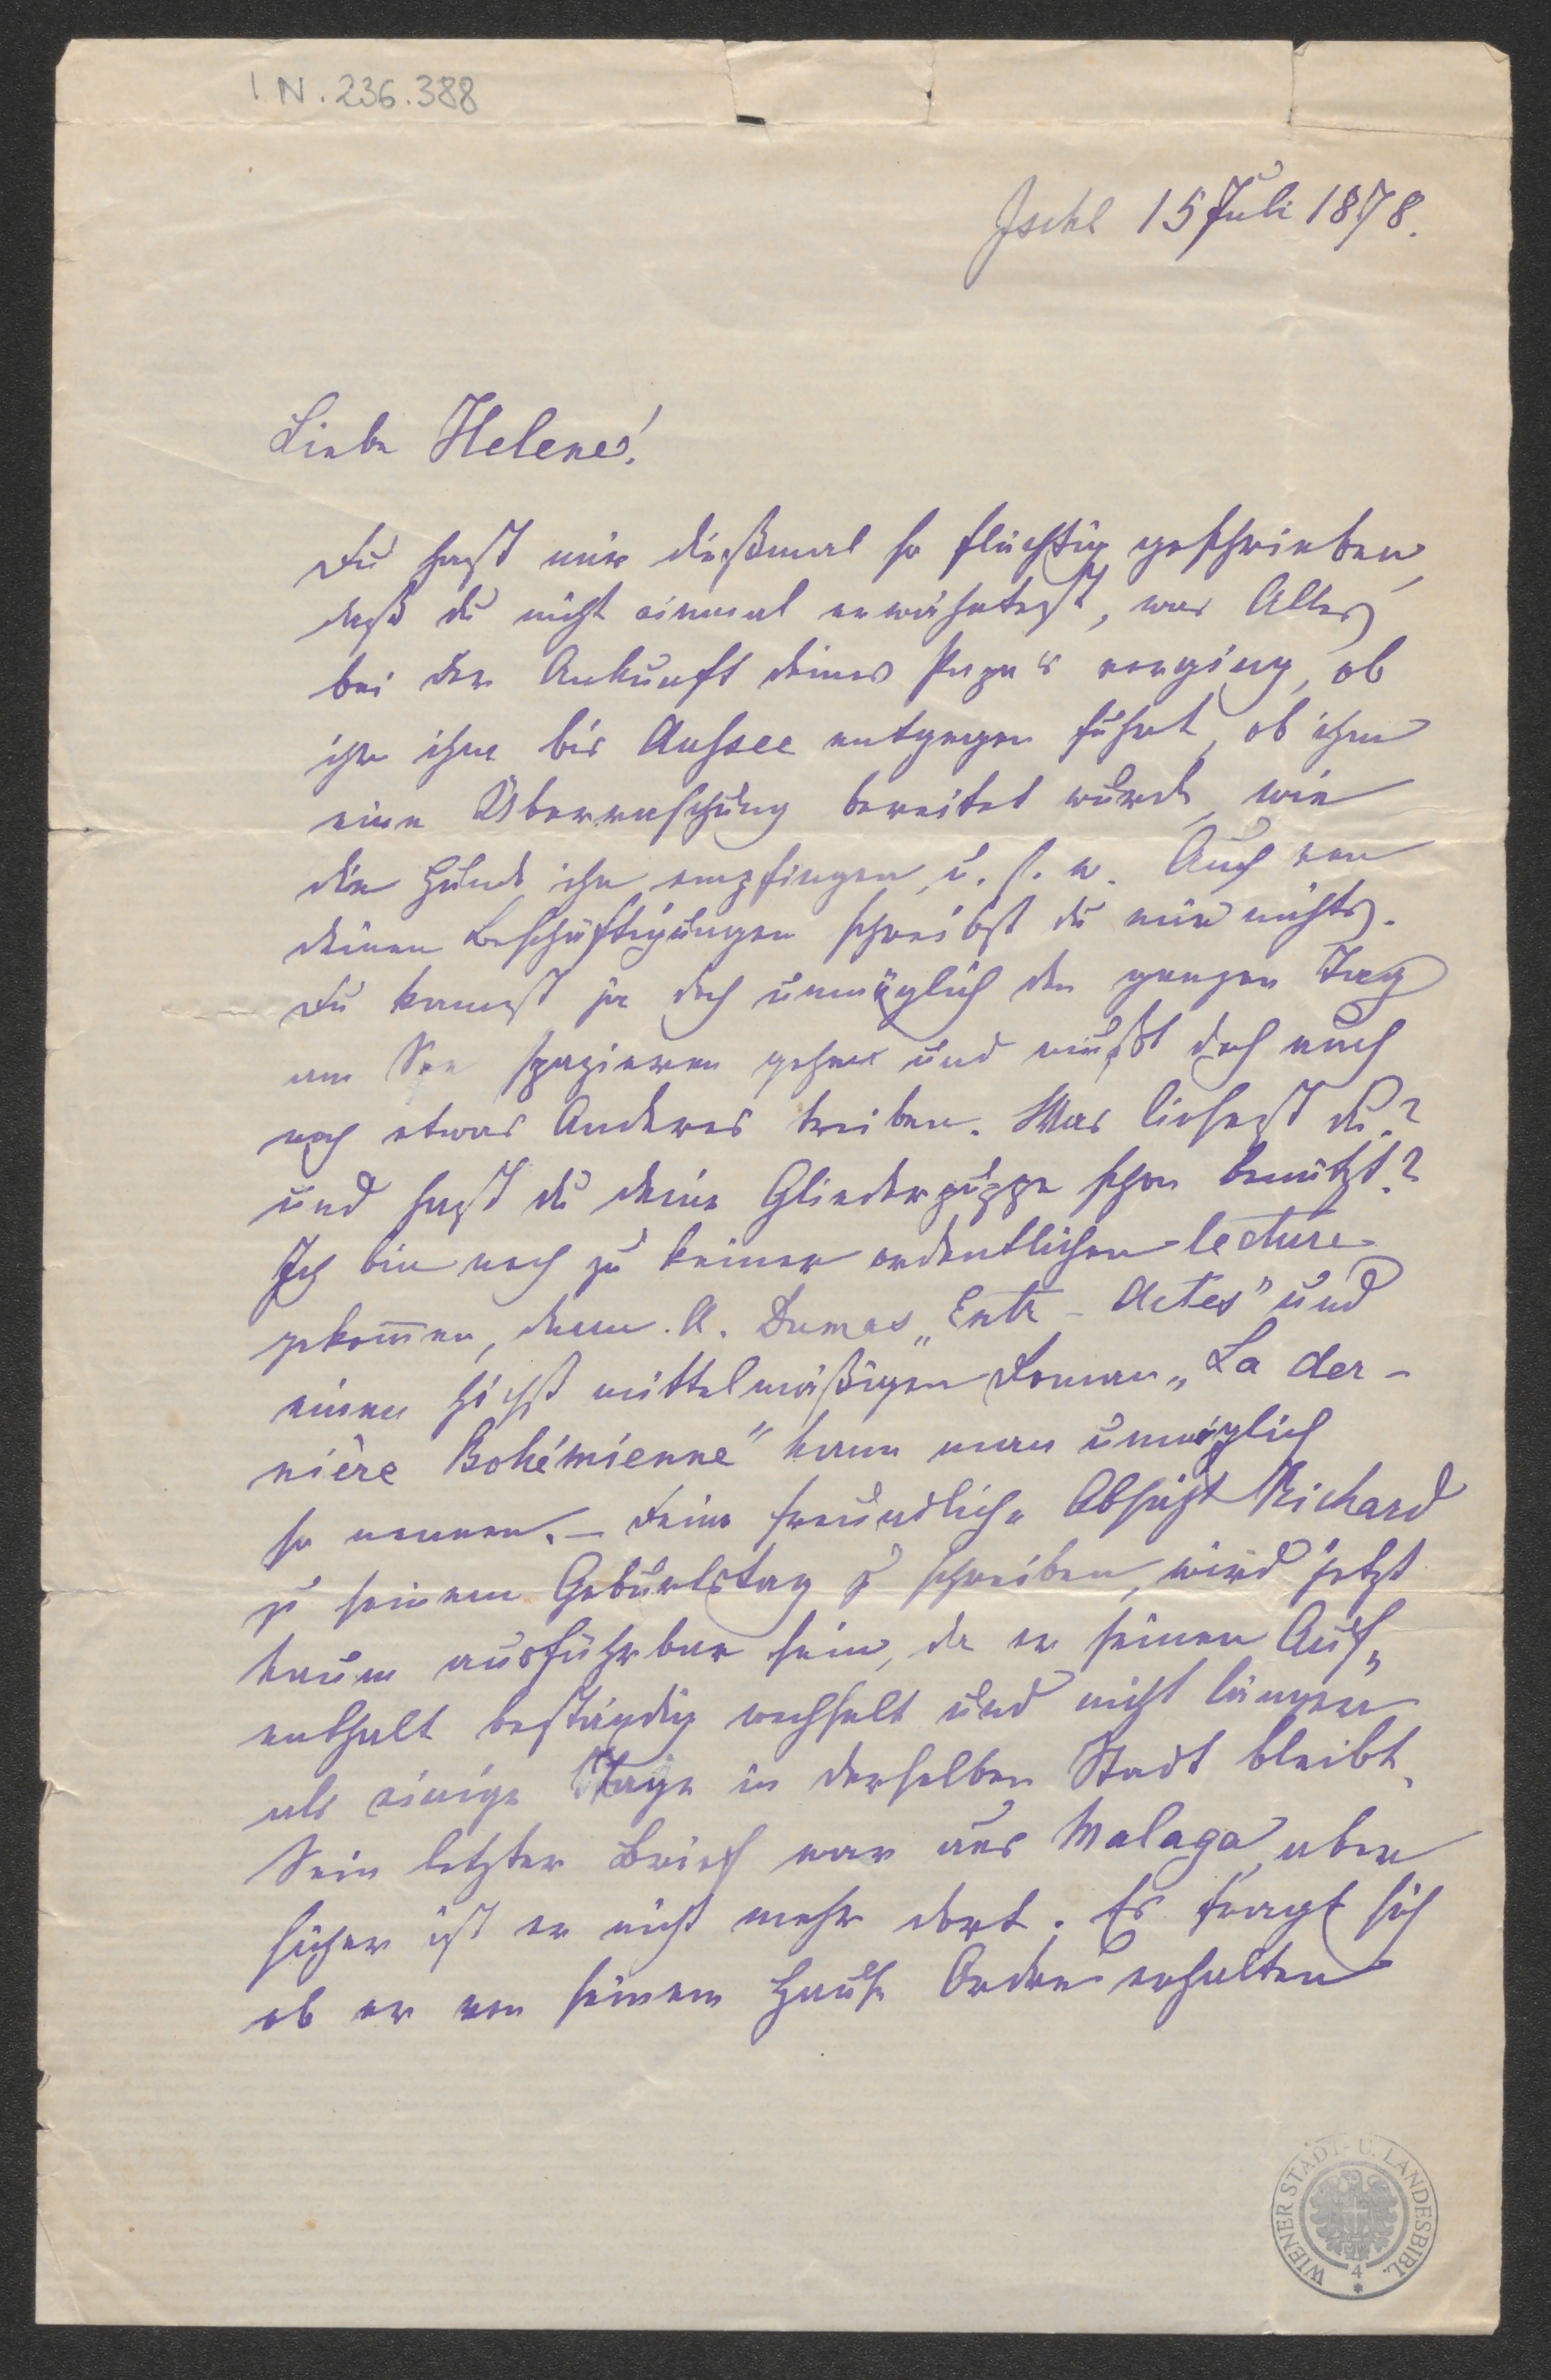 I.N. 236.388
Ischl 15 Juli 1878.
Liebe Helene!
Du hast mir dießmal so flüchtig geschrieben,
daß du nicht einmal erwähntest, was Alles
bei der Ankunft deines Papa's vorging, ob
ihr ihm bis Aussee entgegen fuhrt, ob ihm
eine Überraschung bereitet wurde, wie
die Hunde ihn empfingen, u. s. w. Auch von
deinen Beschäftigungen schreibst du mir nichts.
Du kannst ja doch unmöglich den ganzen Tag
am See spazieren gehen und mußt doch auch
noch etwas Anderes treiben. Was liesest du?
und hast du deine Gliederpuppe schon benützt?
Ich bin noch zu keiner ordentlichen lecture
gekom̅en, denn A. Dumas „Entr-Actes" und
einen höchst mittelmäßigen Roman „La der-
nière Bohémienne" kann man unmöglich
so nennen. – Deine freundliche Absicht Richard
zu seinem Geburtstag z schreiben, wird jetzt
kaum ausführbar sein, da er seinen Auf„
enthalt beständig wechselt und nicht länger
als einige Tage in derselben Stadt bleibt.
Sein letzter Brief war aus Malaga, aber
sicher ist er nicht mehr dort. Es fragt sich
ob er von seinem Hause Ordre erhalten
WIENER STADT- U. LANDESBIBL.
4